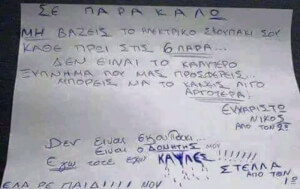 ΣΕ ΠΑΡΑΚΑΛΩ
ΜΗ ΒΑΖΕΙΣ ΤΟ ΗΛΕΚΤΡΙΚΟ ΣΚΟΥΠΑΚΙ ΣΟΥ
ΚΑΘΕ ΠΡΩΙ ΣΤΙΣ 6 ΠΑΡΑ...
ΔΕΝ ΕΙΝΑΙ ΤΟ ΚΑΛΥΤΕΡΟ
ΞΥΠΝΗΜΑ ΠΟΥ ΜΑΣ ΠΡΟΣΦΕΡΕΙΣ...
ΜΠΟΡΕΙΣ ΝΑ ΤΟ ΚΑΝΕΙΣ ΛΙΓΟ
ΑΡΓΟΤΕΡΑ!
ΕΥΧΑΡΙΣΤΩ
ΝΙΚΟΣ
ΑΠΟ ΤΟΝ
Δεν ειναι σκουπακι...
Ειναι ο ΔΟΝΗΤΗΣ ΜΟΥ
Εγω τοτε εχω ΚΑΥΛΕΣ!!!!!!
ΣΤΕΛΛΑ
ΑΠΟ ΤΟΝ
ΕΛΑ ΡΕ ΠΑΙΔΙ!!!! ΜΟΥ